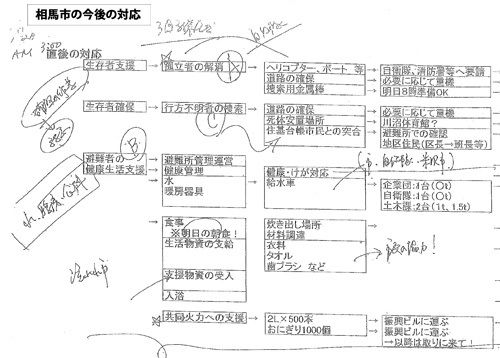 相馬市の今後の対応
AM 3:00
直後の対応
生存者支援
孤立者の解消
ヘリコプター、ボート 等
自衛隊、消防署等へ要請
道路の確保
必要に応じて重機
捜索用金属棒
明日8時準備OK
生存者確保
行方不明者の捜索
道路の確保
必要に応じて重機
死体安置場所
川沼体育館？
住基台帳市民との突合
避難所での確認
地区住民(区長→班長等)
A
B
C
避難者の
健康生活支援
避難所管理運営
健康管理
水
暖房器具
健康・けが対応
給水車
企業団:4台(○t)
自衛隊:4台(○t)
土木課:2台(1t、1.5t)
食事
※明日の朝食！
生活物資の支給
支援物資の受入
入浴
炊き出し場所
材料調達
衣料
タオル
歯ブラシ など
共同火力への支援
2L×500本
おにぎり1000個
振興ビルに運ぶ
振興ビルに運ぶ
→以降は取りに来て！